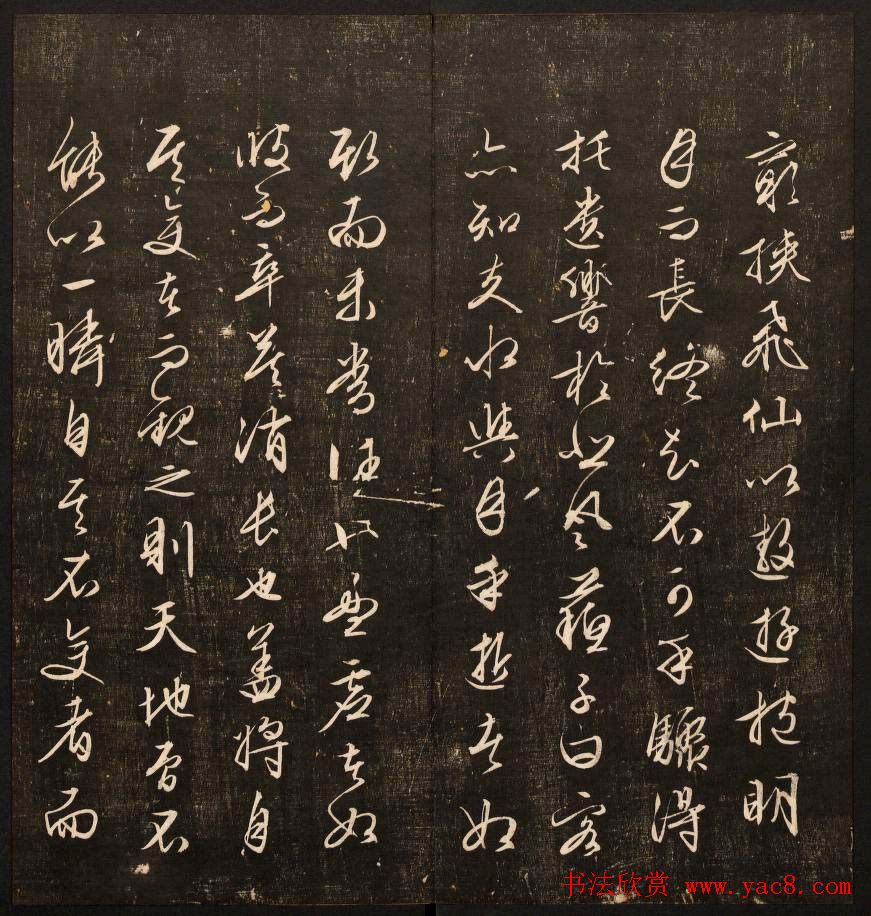 窮挾飛仙以遨遊抱明
月而長終知不可乎驟得
托遺響於悲風蘇子曰客
亦知夫水與月乎逝者如
斯而未嘗往也盈虛者如
彼而卒莫消長也蓋將自
其變者而觀之則天地曾不
能以一瞬自其不變者而
书法欣赏 www.yac8.com